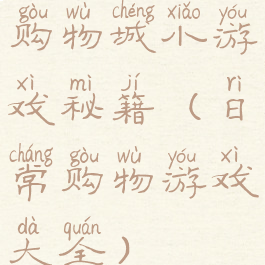 gòu wù chéng xiǎo yóu
购物城小游
xì mì jí rì
戏秘籍（日
cháng gòu wù yóu xì
常购物游戏
dà quán
大全）